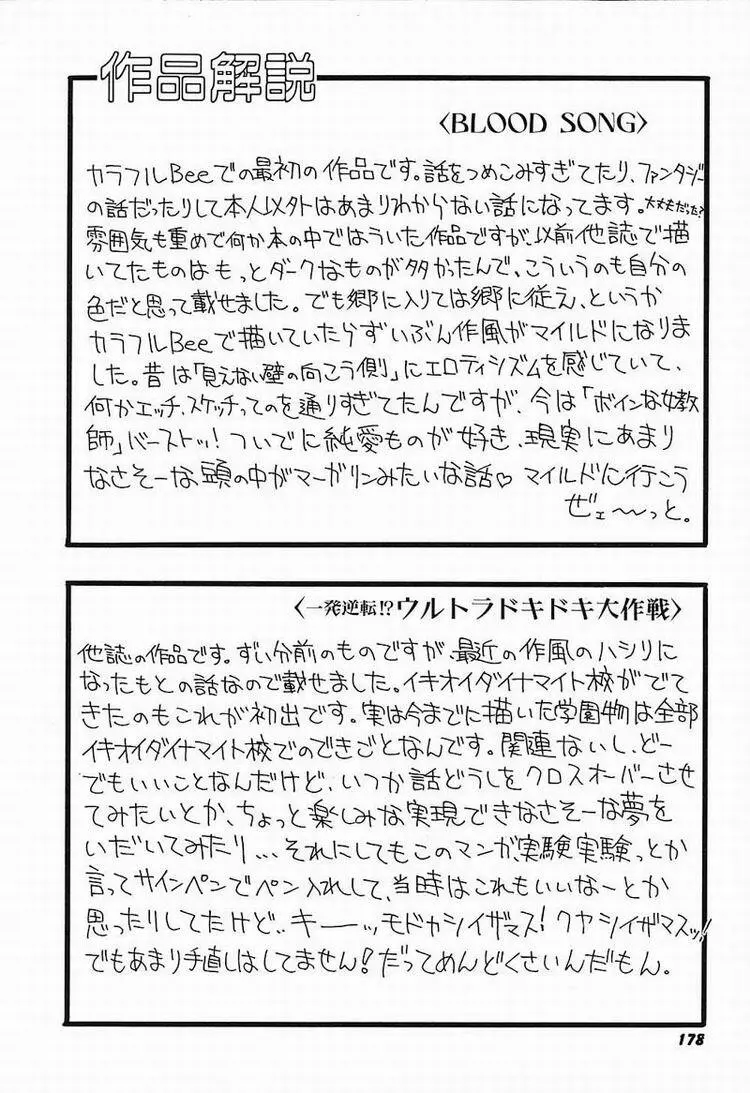 作品解説
〈BLOOD SONG〉
カラフルBeeでの最初の作品です。話をつめこみすぎてたり、ファンタジー
の話だったりして本人以外はあまりわからない話になってます。大丈夫だった?
雰囲気も重めで何か本の中ではういた作品ですが、以前他誌で描
いてたものはもっとダークなものが多かったんで、こういうのも自分の
色だと思って載せました。でも郷に入りては郷に従え、というか
カラフルBeeで描いていたらずいぶん作風がマイルドになりま
した。昔は「見えない壁の向こう側」にエロティシズムを感じていて、
何かエッチ、スケッチってのを通りすぎてたんですが、今は「ボインな女教
師」バーストッ!ついでに純愛ものが好き、現実にあまり
なさそーな、頭の中がマーガリンみたいな話♡ マイルドに行こう
ぜェ〜〜っと。
〈一発逆転!?ウルトラドキドキ大作戦〉
他誌の作品です。ずい分前のものですが、最近の作風のハシリに
なったもとの話なので載せました。イキオイダイナマイト校がでて
きたのもこれが初出です。実は今までに描いた学園物は全部
イキオイダイナマイト校でのできごとなんです。関連ないし、どー
でもいいことなんだけど、いつか話どうしをクロスオーバーさせ
てみたいとか、ちょっと楽しみな実現できなさそーな夢を
いだいてみたり...それにしてもこのマンガ、実験実験っとか
言ってサインペンでペン入れして、当時はこれもいいなーとか
思ったりしてたけど..キーーッモドカシイザマス!クヤシイザマスッ!!
でもあまり手直しはしてません!だってめんどくさいんだもん。
178